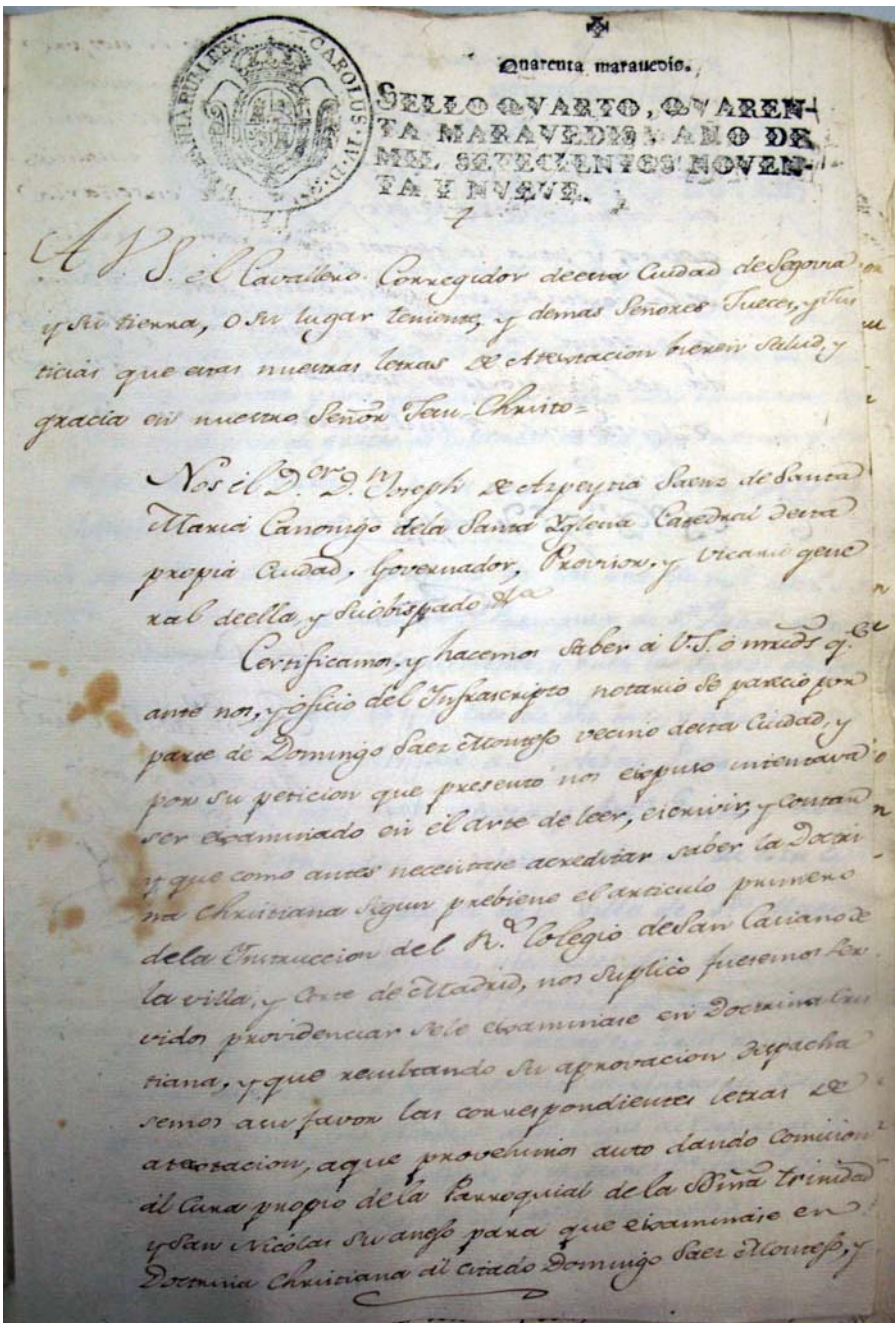 HISPANIARUM REX CAROLUS IV D. G.
Quarenta maravedis.
SELLO QVARTO, QVAREN-
TA MARAVEDIS, AÑO DE
MIL SETECIENTOS NOVEN-
TA Y NVEVE.
A V S. el Cavallero Corregidor de esta Ciudad de Segovia
y su tierra, o su lugar teniente, y demas Señores Jueces, y Jus
ticias que estas nuestras letras de Atestacion bieren salud, y
gracia en nuestro Señor Jesu-Christo=
Nos el D.or D.n Joseph de Azpeytia Saenz de Santa
Maria Canonigo dela Santa Yglesia Catedral desta
propia Ciudad, Governador, Provisor, y Vicario gene
ral deella y suobispado &a
Certificamos, y hacemos saber a V.S. ó mrds q.e
ante nos, y oficio del Infrascripto notario se parecio por
parte de Domingo Saez Montejo vecino desta Ciudad, y
por su peticion que presento nos expuso intentava
ser examinado en el arte de leer, escrivir, y contar
y que como antes necesitase acreditar saber la Doctri
na Christiana segun prebiene el articulo primero
dela Instruccion del R.l Colegio de San Casiano de
la villa, y Corte de Madrid, nos suplicó fuesemos ser
vidos providenciar sele examinase en Doctrina Cris
tiana, y que resultando su aprovacion despacha
semos asu favor las correspondientes letras de
atestacion, aque provehimos auto dando Comision
al Cura propio de la Parroquial de la SSma trinidad
y San Nicolas su anejo para que examinase en
Doctrina Christiana al citado Domingo Saez Montejo, y